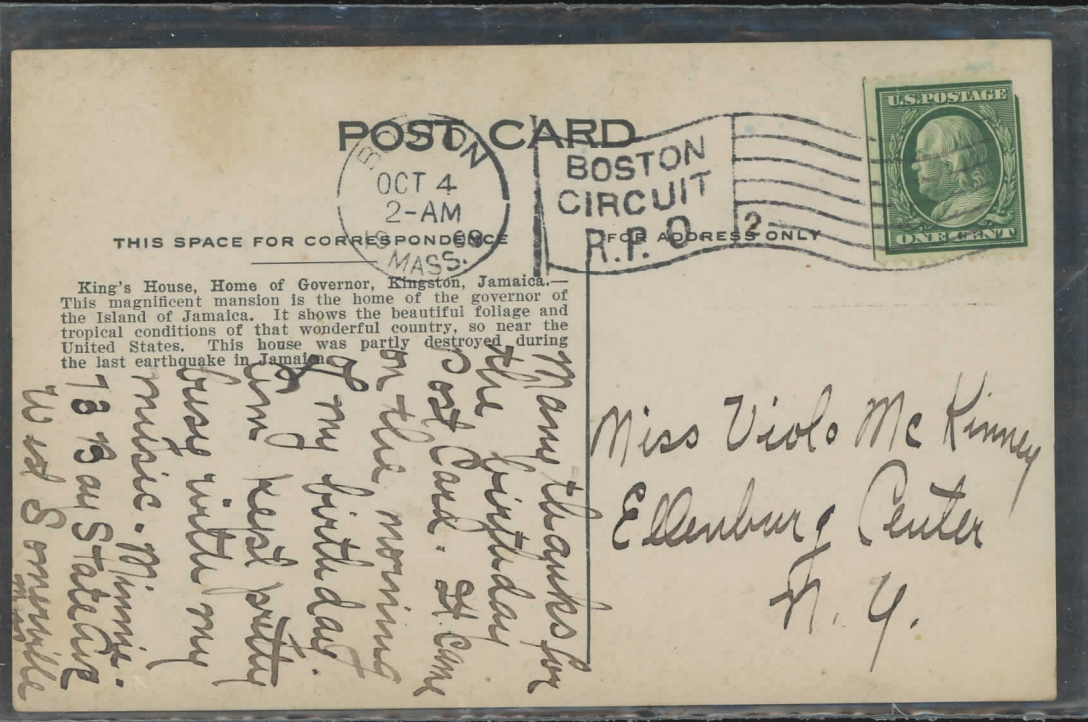 POST CARD
BOSTON
OCT 4
2-AM
09
MASS.
BOSTON
CIRCUIT
R.P.O
2
U.S. POSTAGE
ONE CENT
THIS SPACE FOR CORRESPONDENCE
FOR ADDRESS ONLY
King's House, Home of Governor, Kingston, Jamaica.—
This magnificent mansion is the home of the governor of
the Island of Jamaica. It shows the beautiful foliage and
tropical conditions of that wonderful country, so near the
United States. This house was partly destroyed during
the last earthquake in Jamaica.
Many thanks for
the birthday
Post Card. It came
on the morning
of my birthday.
Am kept pretty
busy with my
music. Minnie.
78 Bay State Ave
West Somerville
Mass
Miss Viola McKinney
Ellenburg Center
N. Y.